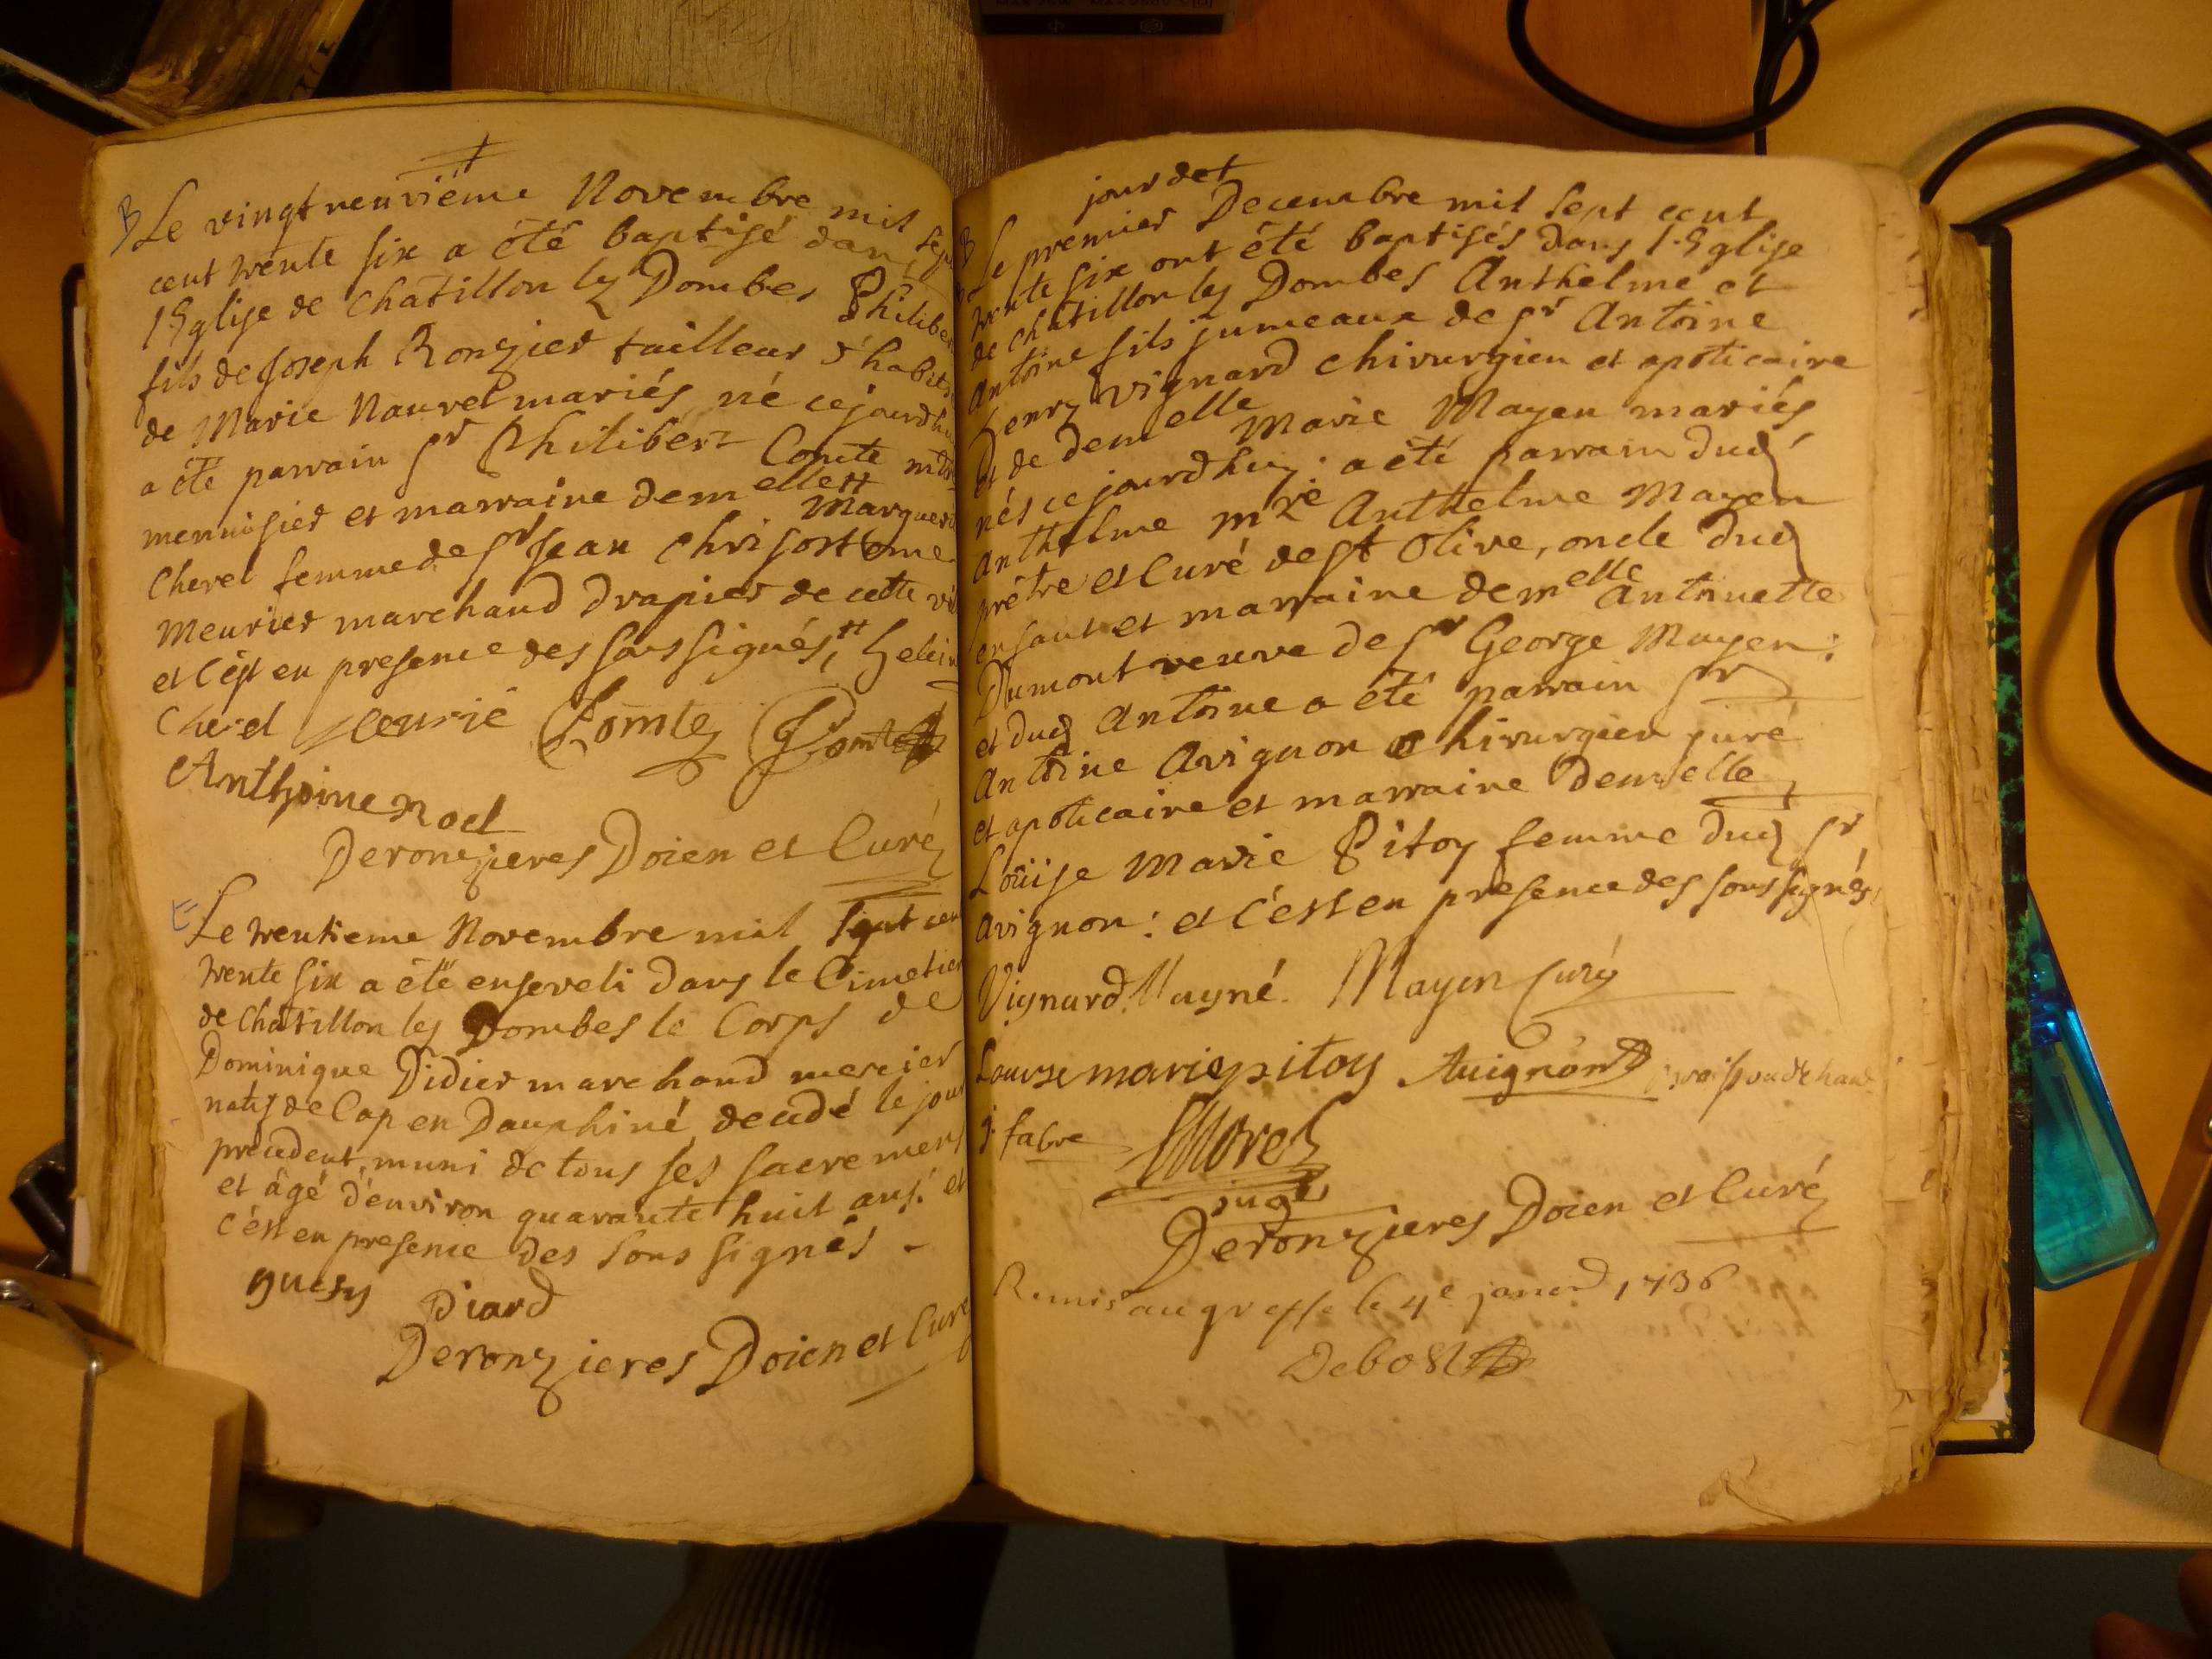 B Le vingt neuviéme Novembre mil sept
cent trente six a été baptisé dans
l'Eglise de Chatillon les Dombes Philibert
fils de Joseph Ronzier tailleur d'habits
de Marie Nauvel mariés, né cejourdhuy
a été parrain sr Philibert Comte mtre
menuisier et marraine demelle Marguerite
Cherel femme de sr Jean Chrisostome
Meurier marchand drapier de cette ville
et c'est en presence des soussignés,
Cherel Meurié Comte Comte
Anthoine Noel
Deronzieres Doien et Curé
E Le trentieme Novembre mil sept cent
trente six a été enseveli dans le Cimetiere
de Chatillon les Dombes le Corps de
Dominique Didier marchand mercier
natif de Gap en Dauphiné, decedé le jour
precedent, muni de tous ses sacremens
et âgé d'environ quarante huit ans: et
c'est en presence des soussignés -
guesy Diard
Deronzieres Doien et Curé
jourdet
B Le premier Decembre mil sept cent
trente six ont été baptisés dans l'Eglise
de Chatillon les Dombes Anthelme et
Antoine fils jumeaux de sr Antoine
Henry Vignard chirurgien et apoticaire
et de demelle Marie Mayen mariés
nés cejourdhuy: a été parrain dud
Anthelme mre Anthelme Mayen
prêtre et Curé de st Olive, oncle dud
enfant et marraine demelle Antoinette
Dumont veuve de sr George Mayen:
et dud Antoine a été parrain sr
Antoine Avignon chirurgien juré
et apoticaire et marraine demelle
Loüise Marie Pitoy femme dud sr
Avignon: et c'est en presence des soussignés
Vignard Mayen Curé
Louise marie pitoy Avignon
fabre Morel
juge
Deronzieres Doien et Curé
Remis au greffe le 4e janvd 1736
Debost